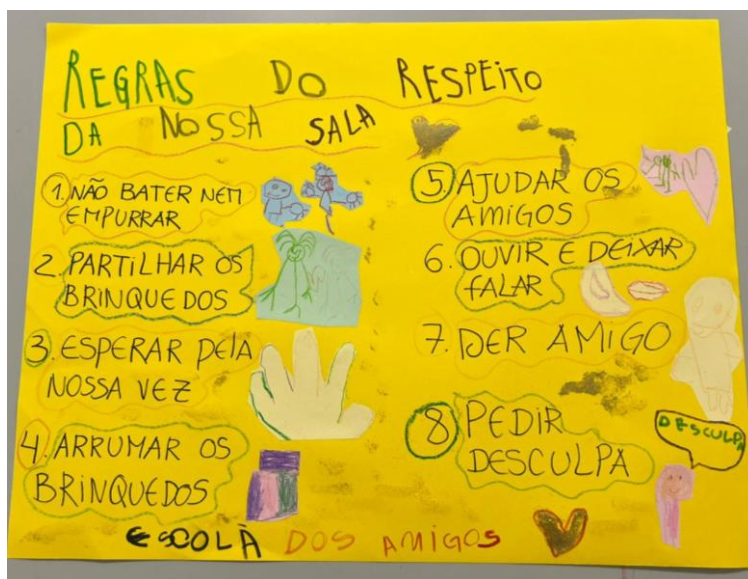 REGRAS DO RESPEITO
DA NOSSA SALA
1. NÃO BATER NEM
EMPURRAR
2. PARTILHAR OS
BRINQUEDOS
3. ESPERAR PELA
NOSSA VEZ
4. ARRUMAR OS
BRINQUEDOS
5. AJUDAR OS
AMIGOS
6. OUVIR E DEIXAR
FALAR
7. DER AMIGO
8 PEDIR
DESCULPA
DESCULPA
ESCOLÀ DOS AMIGOS